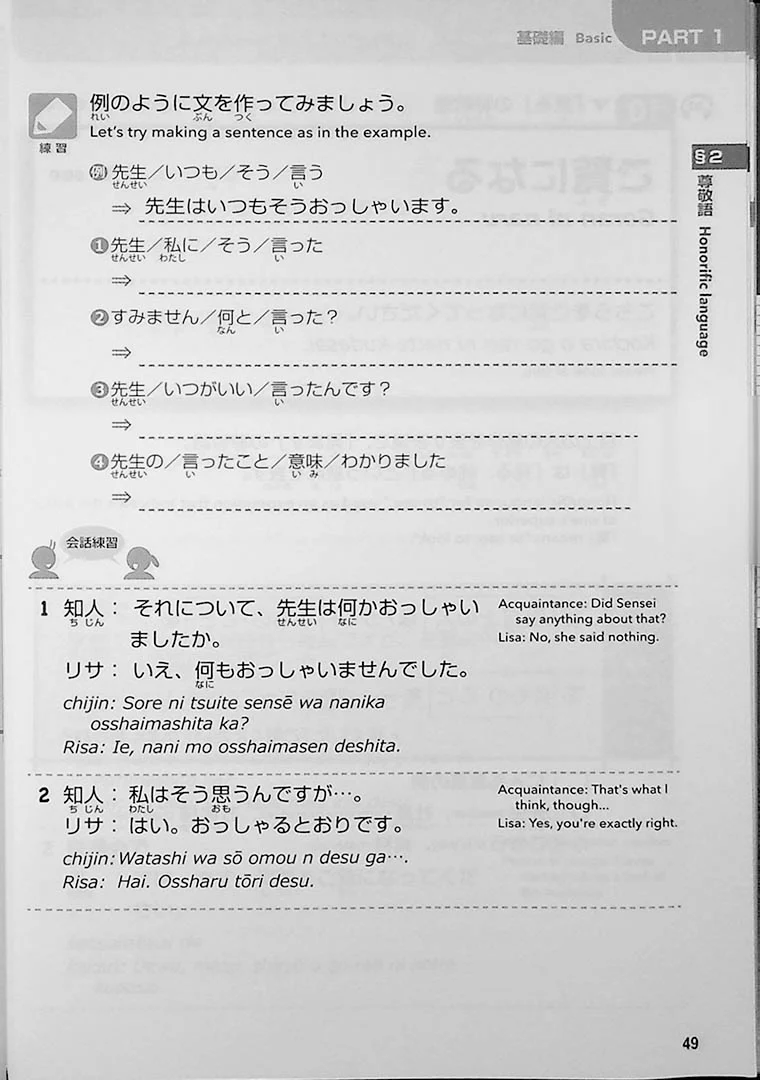 基礎編 Basic PART 1
例のように文を作ってみましょう。
れい ぶん つく
Let's try making a sentence as in the example.
練習
例 先生／いつも／そう／言う
せんせい い
⇒ 先生はいつもそうおっしゃいます。
❶ 先生／私に／そう／言った
せんせい わたし い
⇒
❷ すみません／何と／言った？
なん い
⇒
❸ 先生／いつがいい／言ったんです？
せんせい い
⇒
❹ 先生の／言ったこと／意味／わかりました
せんせい い いみ
⇒
§2
尊敬語 Honorific language
会話練習
1 知人： それについて、先生は何かおっしゃい
ちじん せんせい なに
ましたか。
リサ： いえ、何もおっしゃいませんでした。
なに
chijin: Sore ni tsuite sensē wa nanika
osshaimashita ka?
Risa: Ie, nani mo osshaimasen deshita.
Acquaintance: Did Sensei
say anything about that?
Lisa: No, she said nothing.
2 知人： 私はそう思うんですが…。
ちじん わたし おも
リサ： はい。おっしゃるとおりです。
chijin: Watashi wa sō omou n desu ga….
Risa: Hai. Ossharu tōri desu.
Acquaintance: That's what I
think, though...
Lisa: Yes, you're exactly right.
49